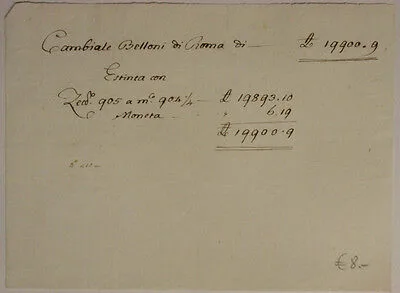 Cambiale Belloni di Roma di — £ 19900.9
Estinta con
Zecⁿⁱ 905 a mᵗᵃ 904¼ — £ 19893.10
Moneta " 6.19
£ 19900.9
€8.-